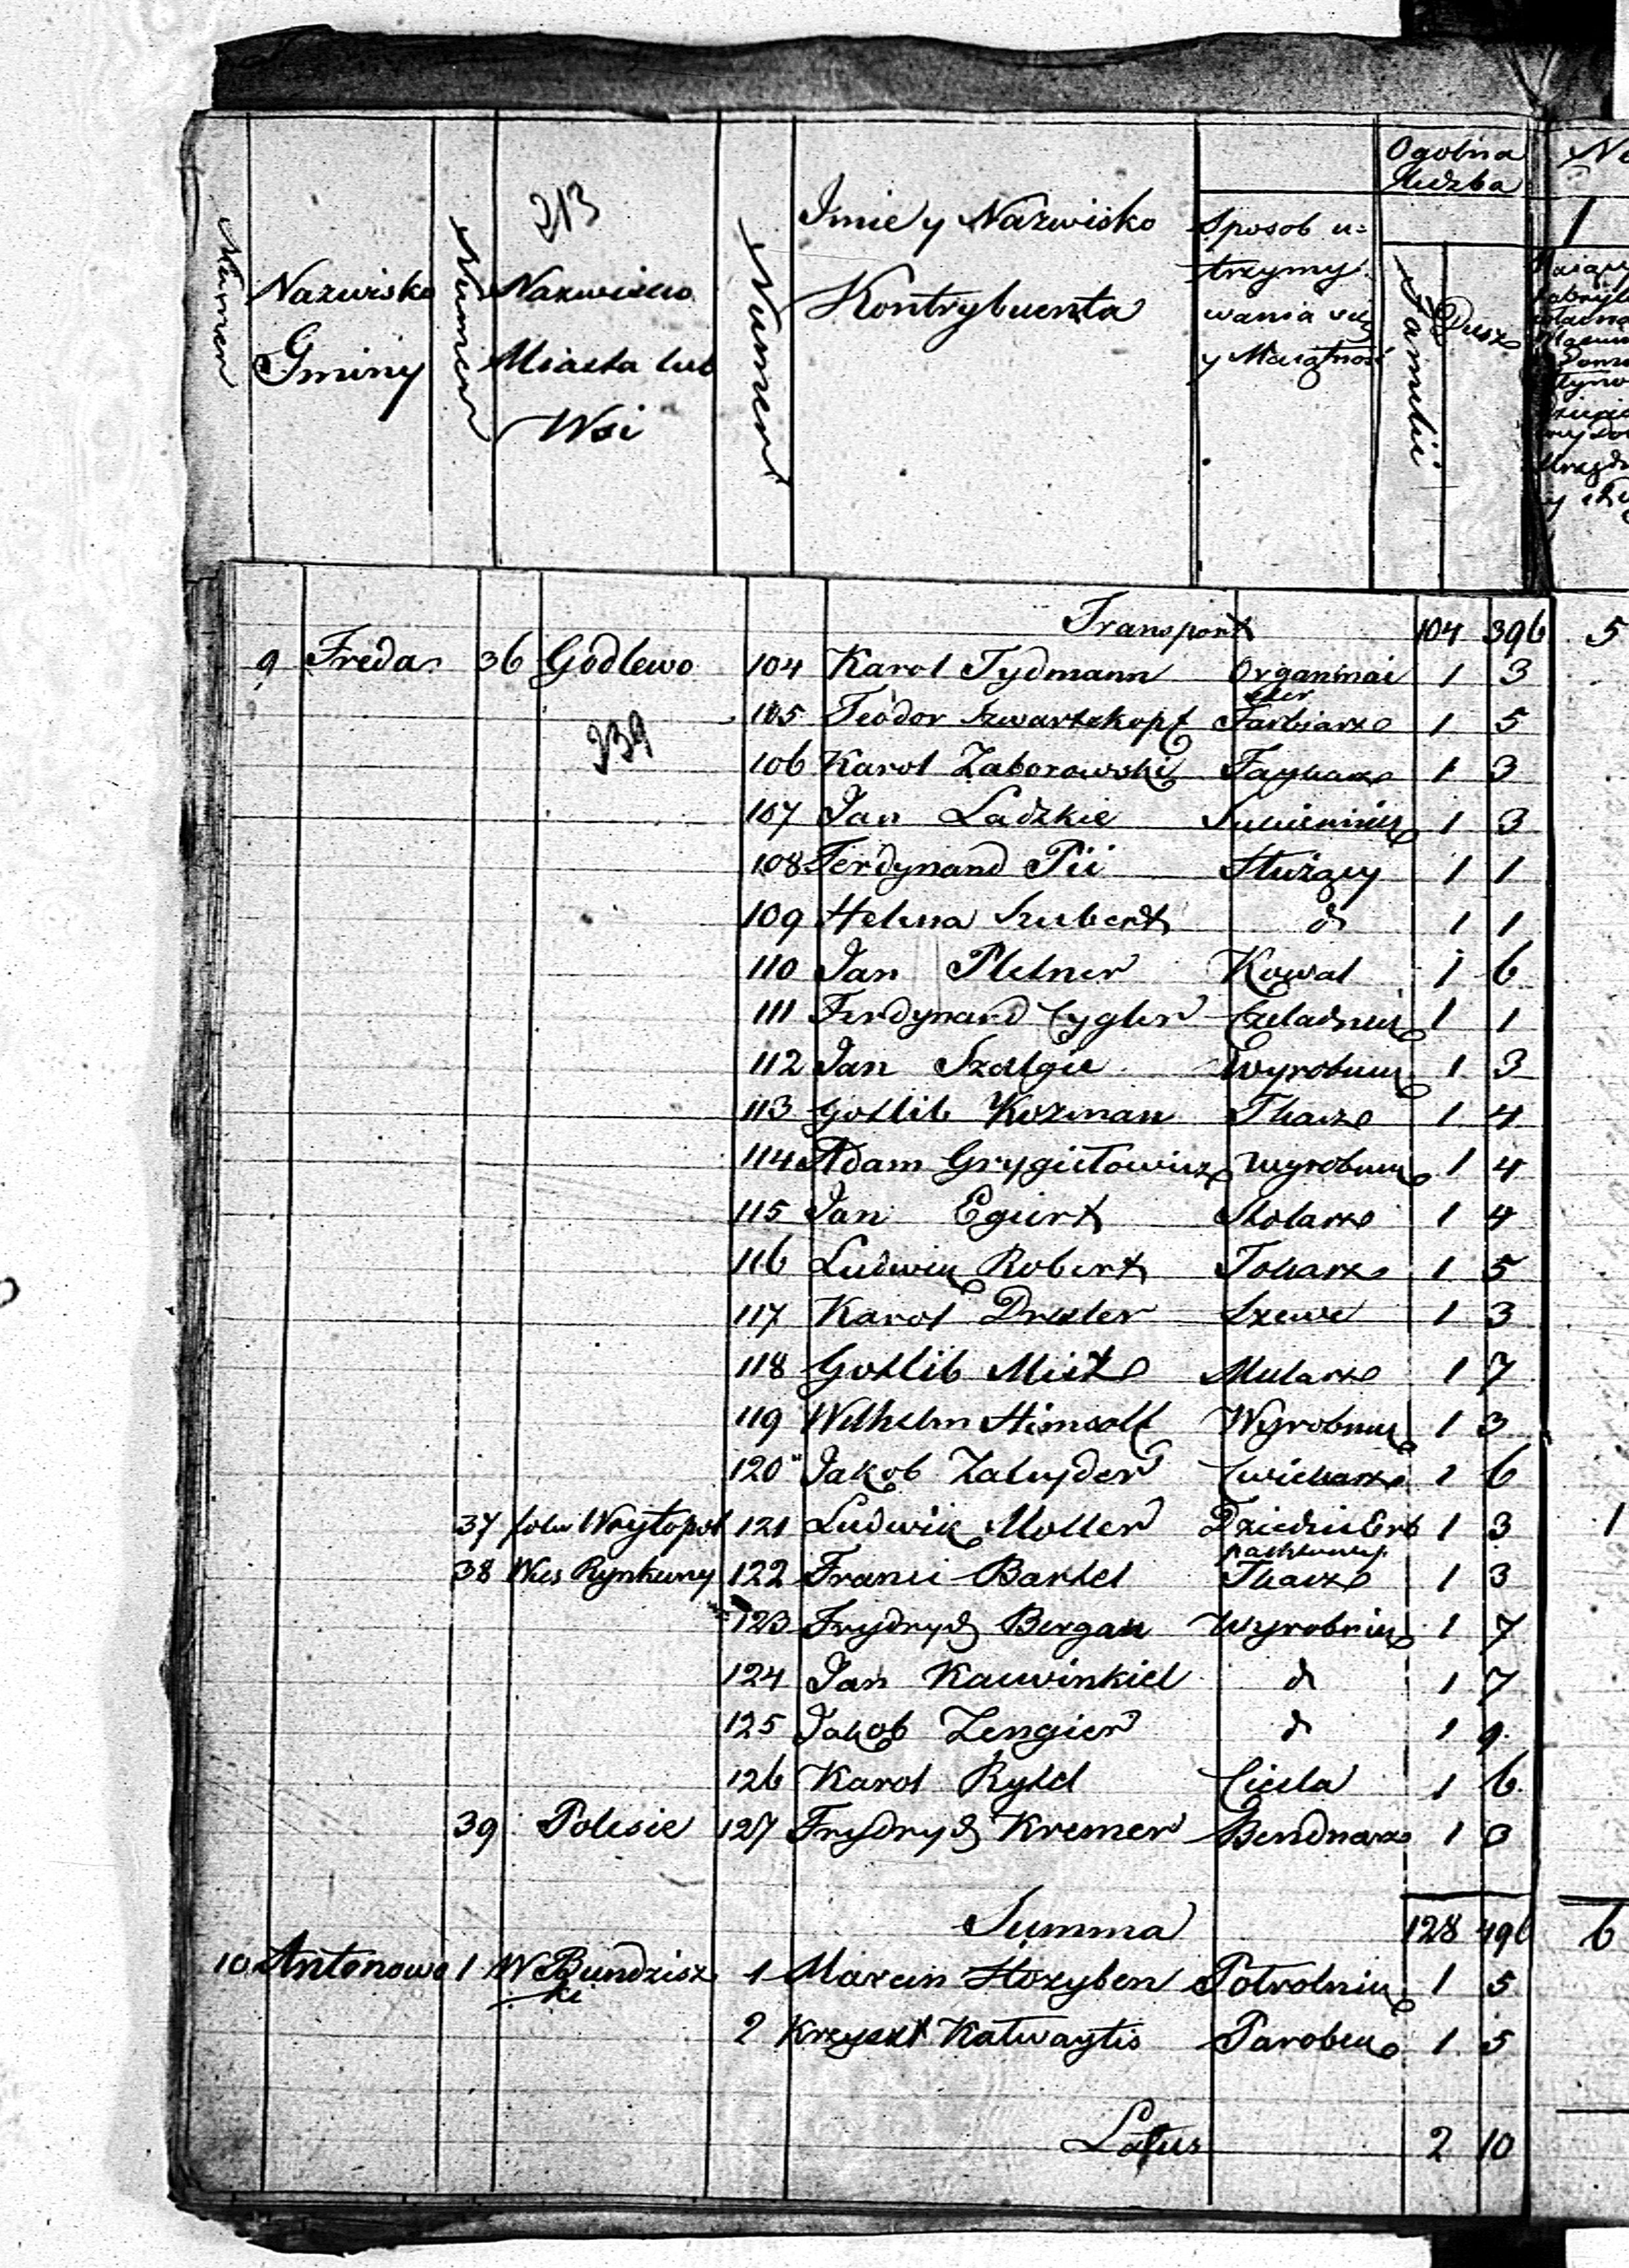 Ogolna
Liczba
213
Numer
Nazwisko
Gminy
Numer
Nazwisko
Miasta lub
Wsi
Numer
Imie y Nazwisko
Kontrybuenta
Sposob u=
trzymy
wania się
y Maiątność
Familii
Dusz
Transport 104 396 5
9 Freda 36 Godlewo 104 Karol Tydmann Organmai 1 3
ster
105 Teodor Szwartzkopf Farbiarz 1 5
339
106 Karol Zaborowski 1 3
107 Jan Ladzkie Sukiennik 1 3
108 Ferdynand Pii Służący 1 1
109 Helena Szubert d 1 1
110 Jan Pletner Kowal 1 6
111 Ferdynand Cygler Czeladnik 1 1
112 Jan Szalgie Wyrobnik 1 3
113 Gotlib Kozman Tkacz 1 4
114 Adam Grygiełowicz Wyrobnik 1 4
115 Jan Egiert Stolarz 1 4
116 Ludwik Robert Tokarz 1 5
117 Karol Drexler Szewc 1 3
118 Gotlib Mietz Mularz 1 7
119 Wilhelm Himsolf Wyrobnik 1 3
120 Jakob Zalwyder Cwiekarz 1 6
37 folw Woytopol 121 Ludwik Moller 1 3 1
38 Wies Rynkuny 122 Franci Bartel Tkacz 1 3
123 Frydrych Bergau Wyrobnik 1 7
124 Jan Kauwinkiel d 1 7
125 Jakob Zengier d 1 9
126 Karol Rytel Ciesla 1 6
39 Polesie 127 Frydrych Kremer Bendnarz 1 3
Summa 128 496 6
10 Antonowo 1 W Bundzisz 1 Marcin Hozyben Potrolnik 1 5
ki
2 Krzyszt Katwaytis Parobek 1 5
Latus 2 10